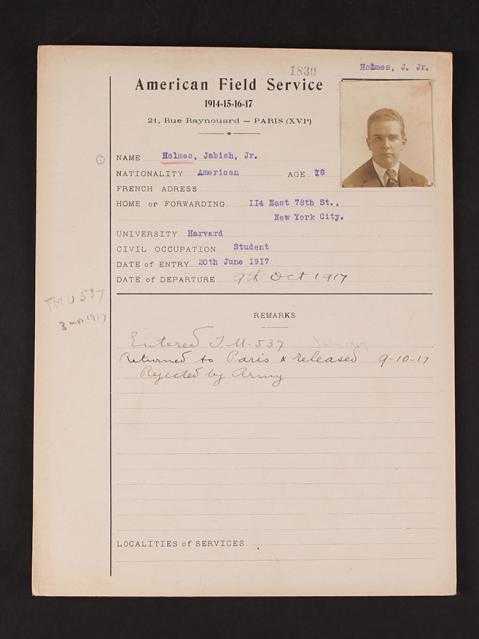 1830
Holmes, J. Jr.
American Field Service
1914-15-16-17
21, Rue Raynouard — PARIS (XVIe)
NAME Holmes, Jabish, Jr.
NATIONALITY American AGE 18
FRENCH ADRESS
HOME or FORWARDING 114 East 78th St.,
New York City.
UNIVERSITY Harvard
CIVIL OCCUPATION Student
DATE of ENTRY 20th June 1917
DATE of DEPARTURE 9th Oct 1917
TMU 537
REMARKS
Entered T.M. 537
Returned to Paris & released 9-10-17
Rejected by Army
LOCALITIES of SERVICES